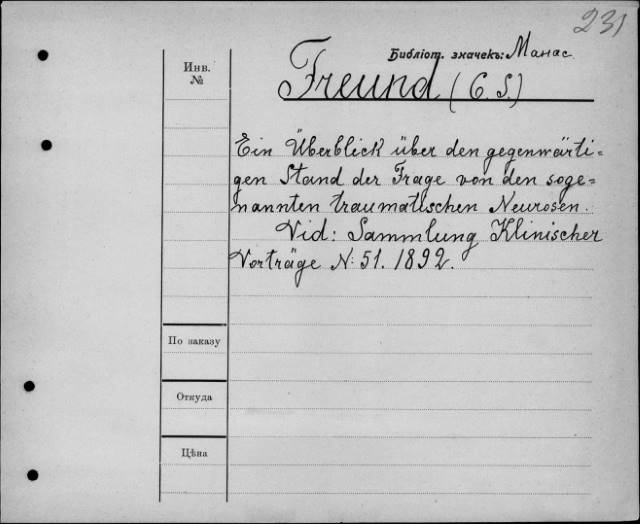 231
Библіот. значекъ: Манас.
Инв.
№
Freund (C. S.)
Ein Überblick über den gegenwärti=
gen Stand der Frage von den soge=
nannten traumatischen Neurosen.
Vid: Sammlung Klinischer
Vorträge N: 51. 1892.
По заказу
Откуда
Цѣна